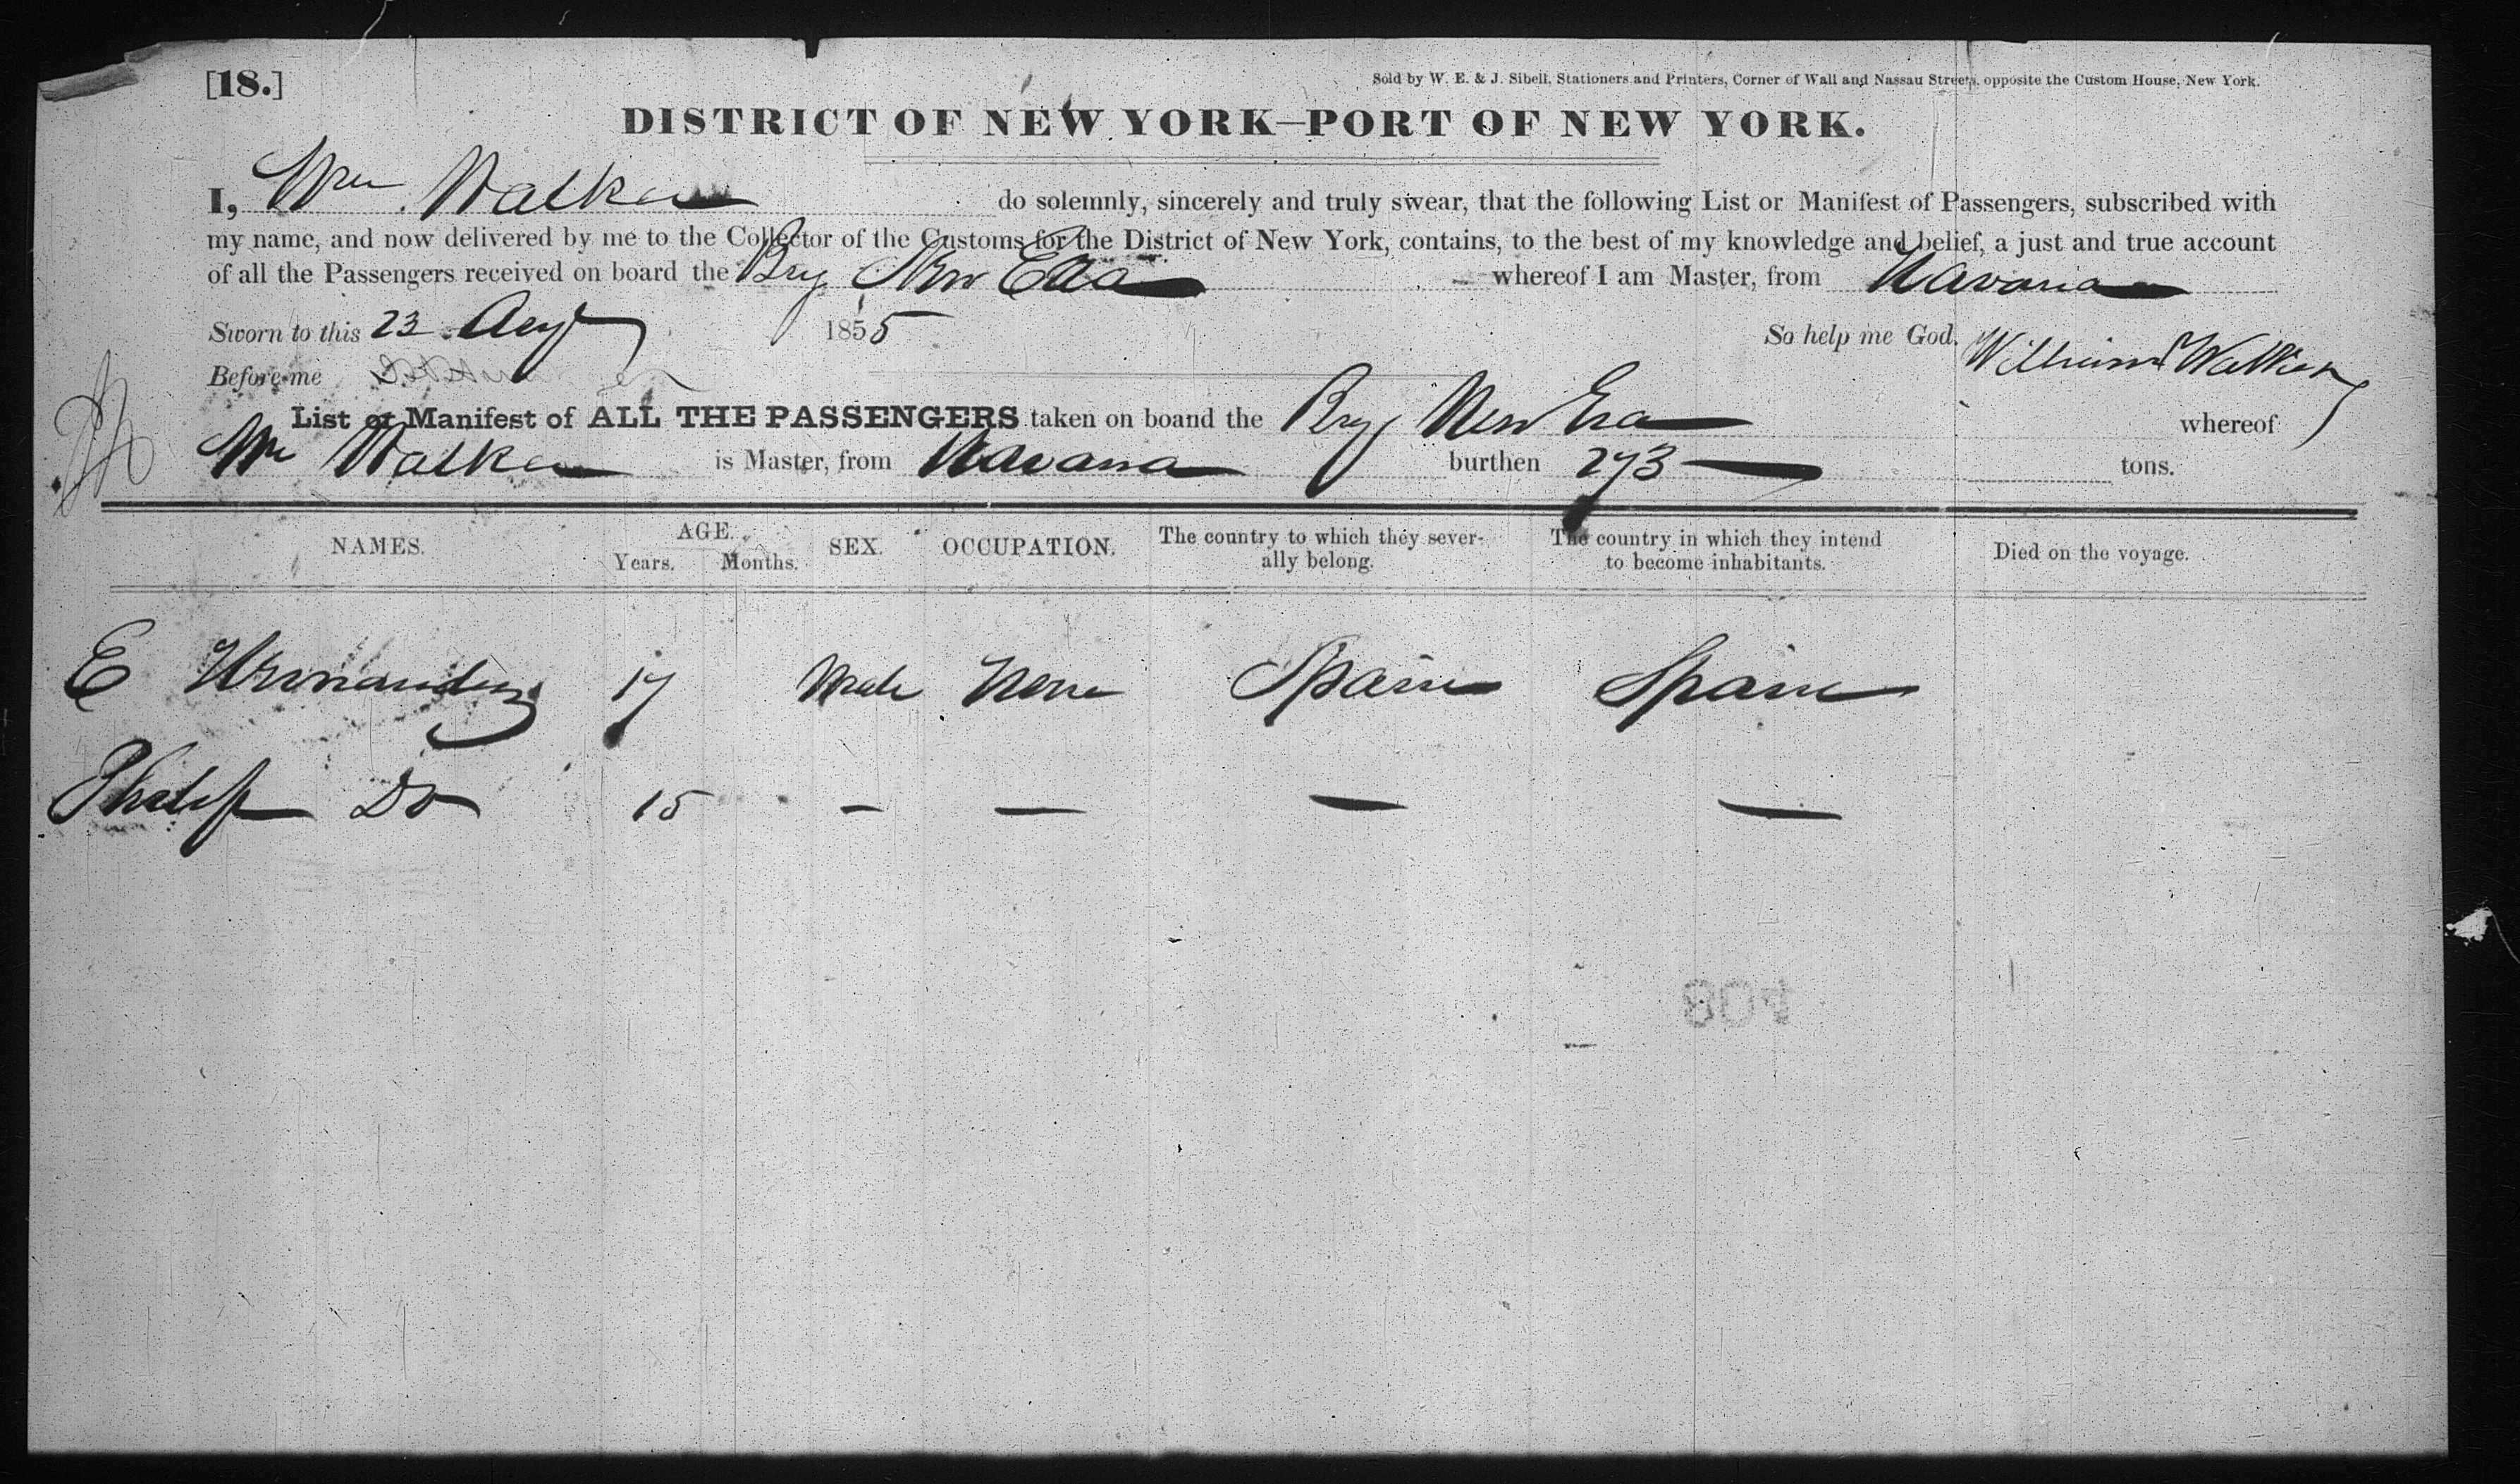 [18.]
Sold by W. E. & J. Sibell, Stationers and Printers, Corner of Wall and Nassau Streets, opposite the Custom House, New York.
DISTRICT OF NEW YORK—PORT OF NEW YORK.
I, Wm Walker do solemnly, sincerely and truly swear, that the following List or Manifest of Passengers, subscribed with
my name, and now delivered by me to the Collector of the Customs for the District of New York, contains, to the best of my knowledge and belief, a just and true account
of all the Passengers received on board the Brig New Era whereof I am Master, from Havana
Sworn to this 23 Aug 1855 So help me God. William Walker
Before me
List or Manifest of ALL THE PASSENGERS taken on board the Brig New Era whereof
Wm Walker is Master, from Havana burthen 273 tons.
NAMES. AGE. Years. Months. SEX. OCCUPATION. The country to which they severally belong. The country in which they intend to become inhabitants. Died on the voyage.
E Hernandez 17 Male None Spain Spain
Philip Do 15 — — — —
108